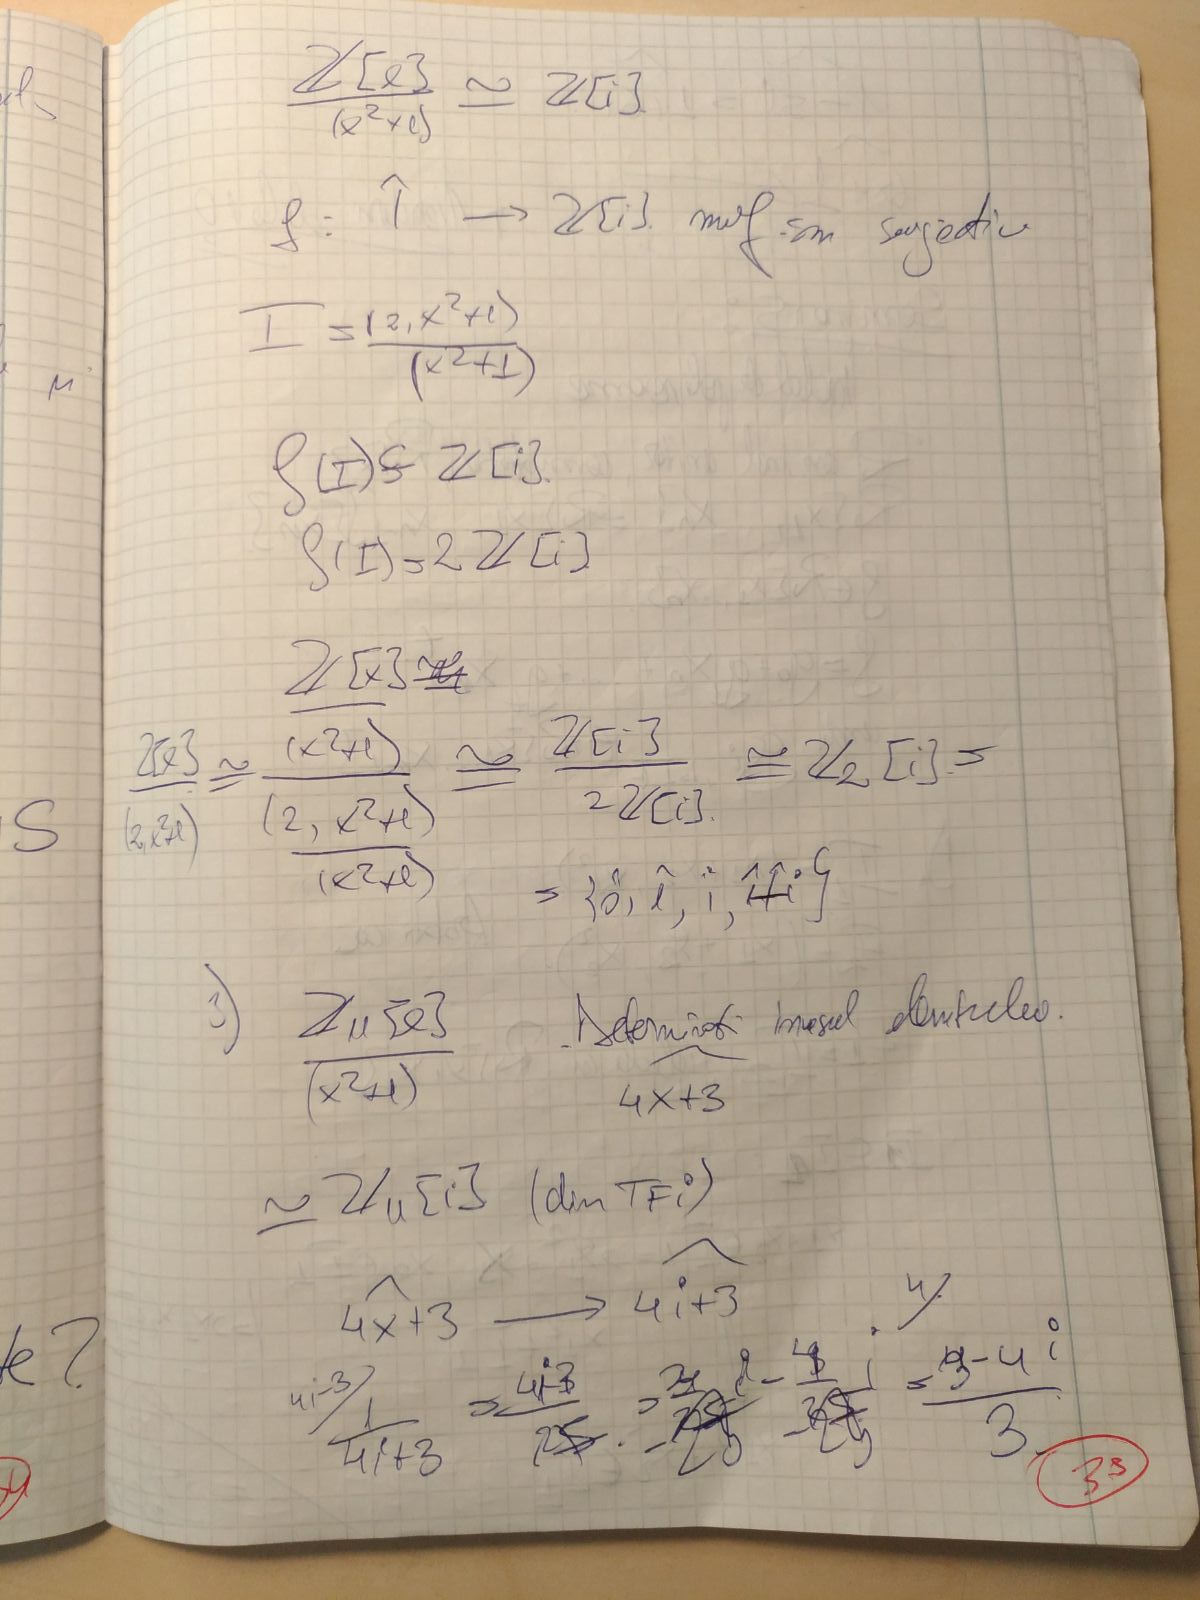 ℤ[x]/(x²+1) ≃ ℤ[i]
f: Î → ℤ[i] morfism surjectiv
I = (2, x²+1)/(x²+1)
f(I) ⊆ ℤ[i]
f(I) = 2ℤ[i]
ℤ[x]/(2, x²+1) ≃ (ℤ[x]/(x²+1))/((2, x²+1)/(x²+1)) ≃ ℤ[i]/2ℤ[i] ≃ ℤ₂[i] =
= {0̂, 1̂, i, 1̂+i}
3) ℤ₁₁[x]/(x²+1) Determinați inversul elementului
4x+3
≃ ℤ₁₁[i] (din TFI)
4x+3 → 4i+3
4i-3/ 1/(4i+3) = = = (3-4i)/3
33